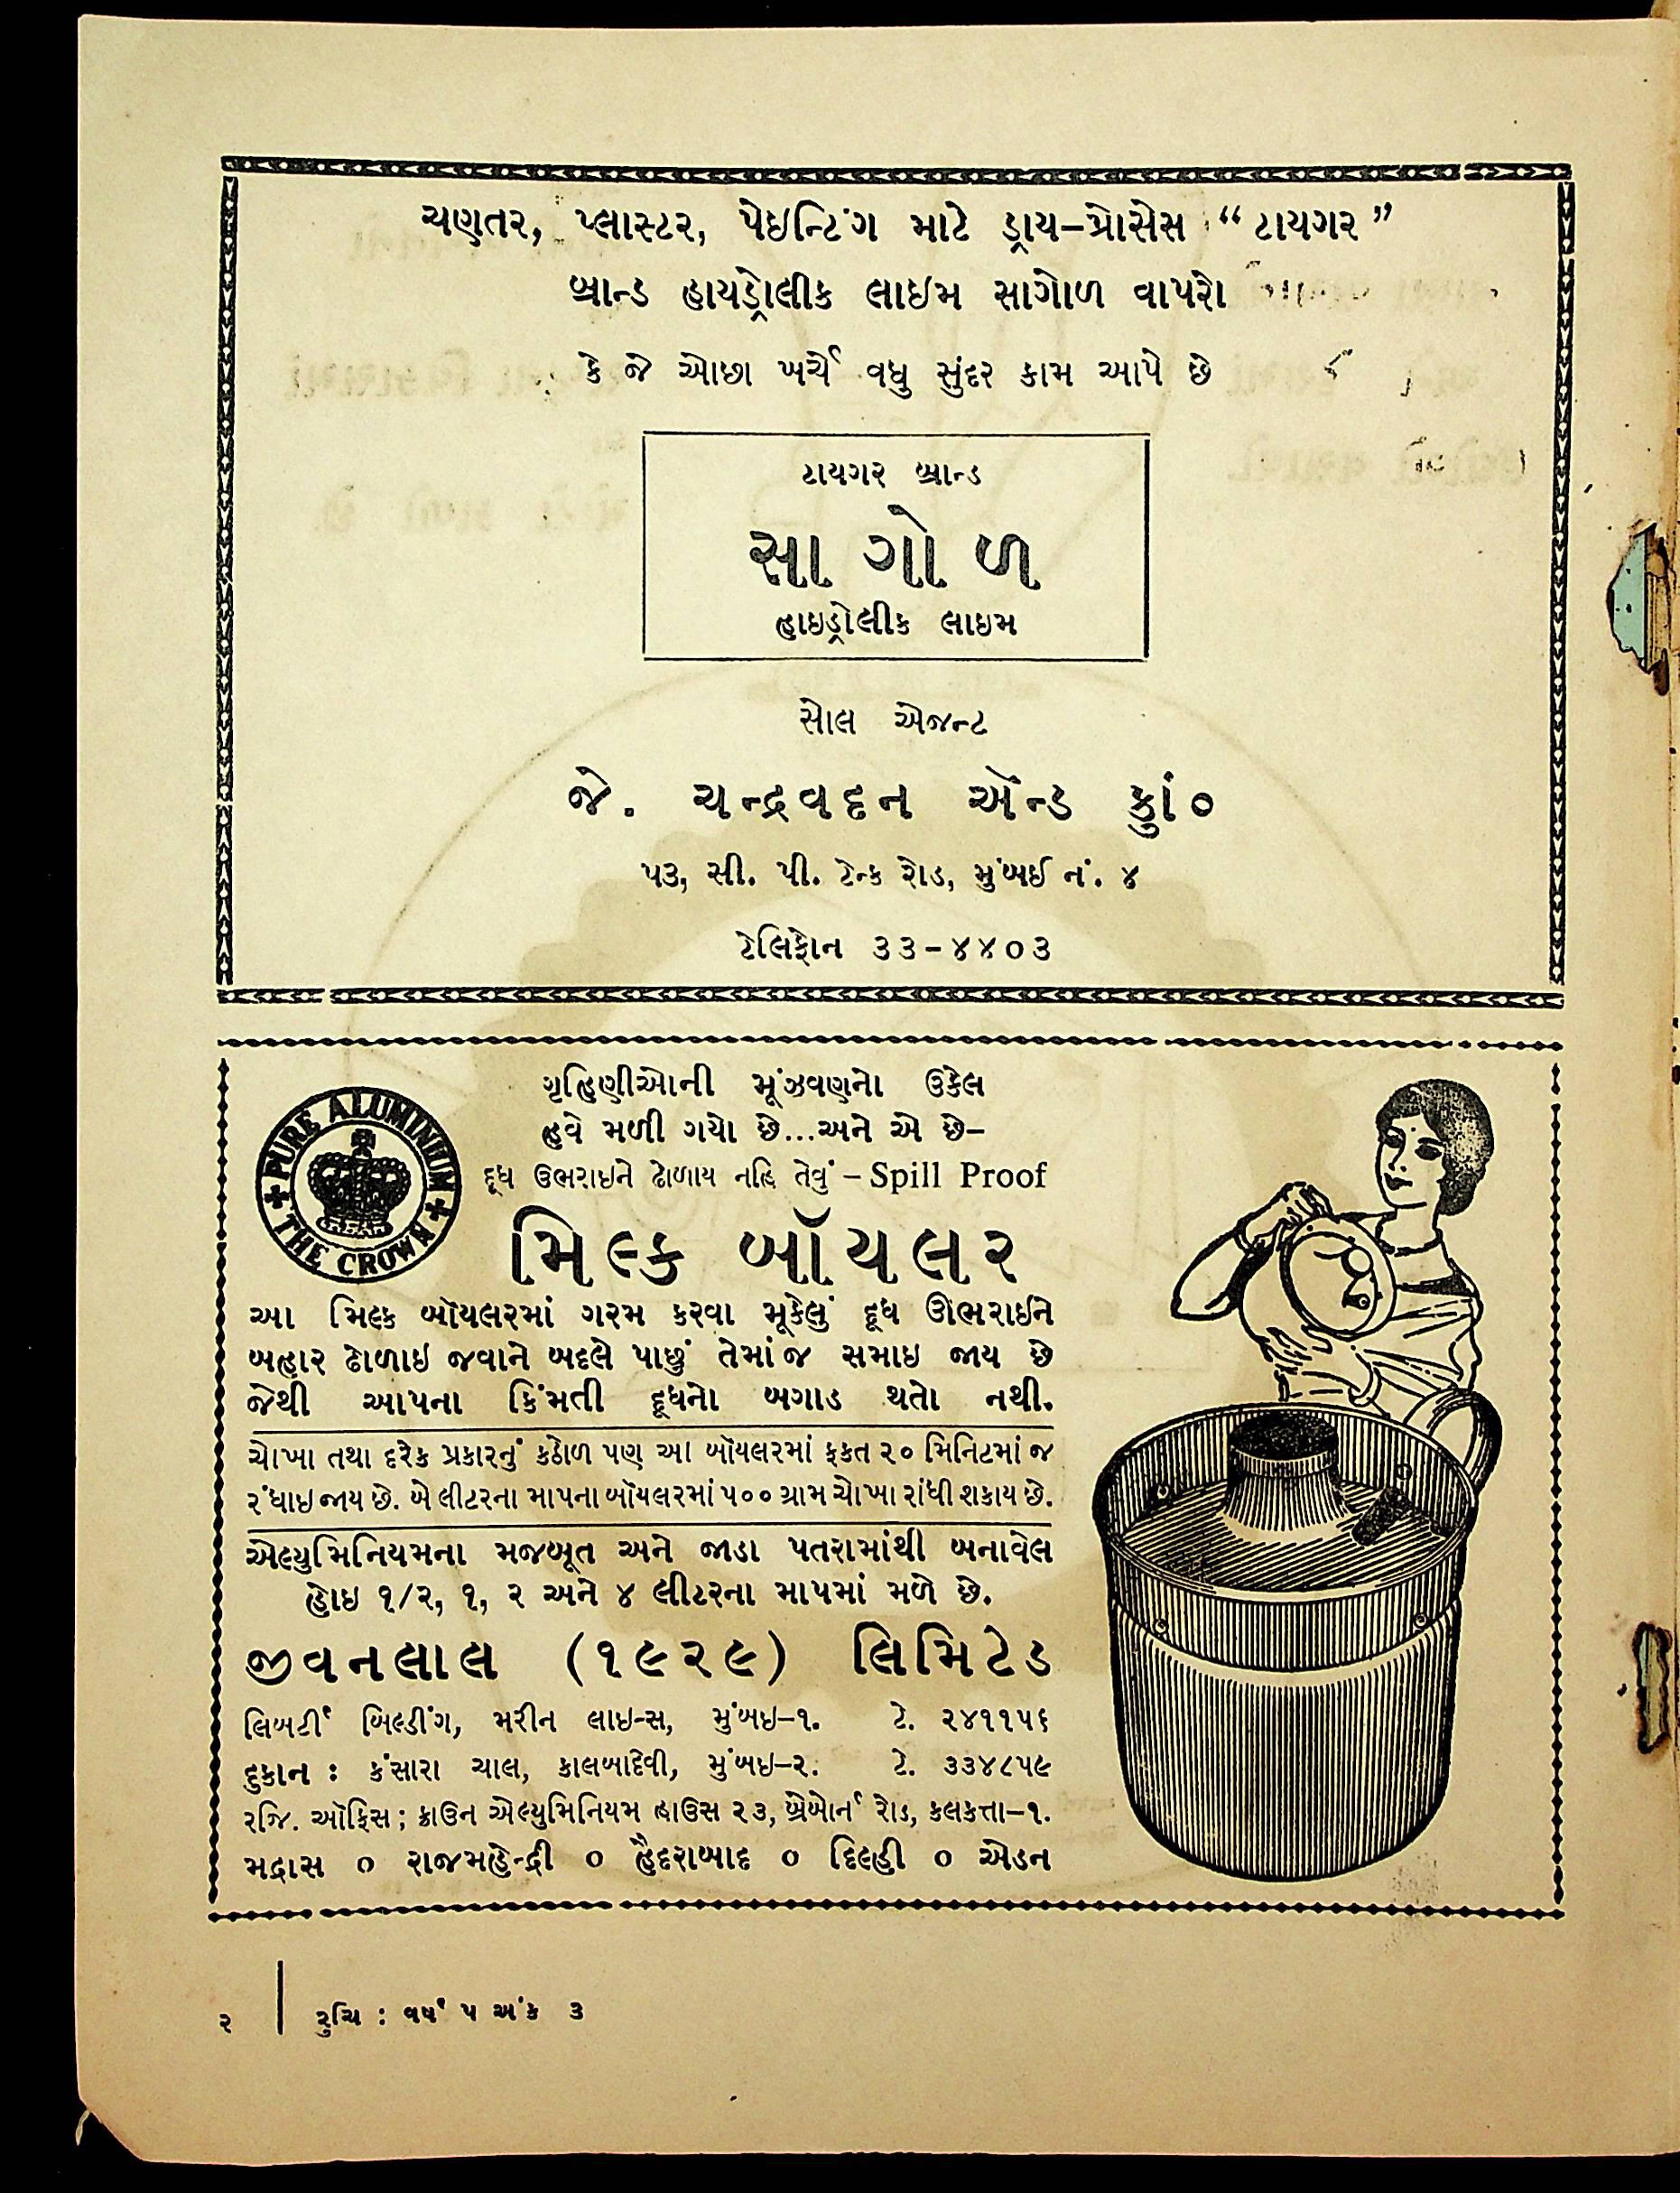 ચણતર, પ્લાસ્ટર, પેઇન્ટિંગ માટે ડ્રાય–પ્રોસેસ “ ટાયગર ”
બ્રાન્ડ હાયડ્રોલીક લાઇમ સાગોળ વાપરો
કે જે ઓછા ખર્ચે વધુ સુંદર કામ આપે છે
ટાયગર બ્રાન્ડ
સા ગો ળ
હાઇડ્રોલીક લાઇમ
સોલ એજન્ટ
જે. ચન્દ્રવદન ઍન્ડ કુાં૦
૫૩, સી. પી. ટેન્ક રોડ, મુંબઈ નં. ૪
ટેલિફોન ૩૩–૪૪૦૩
PURE ALUMINIUM
THE CROWN
ગૃહિણીઓની મૂંઝવણનો ઉકેલ
હવે મળી ગયો છે...અને એ છે–
દૂધ ઉભરાઇને ઢોળાય નહિ તેવું – Spill Proof
મિલ્ક બૉયલર
આ મિલ્ક બૉયલરમાં ગરમ કરવા મૂકેલું દૂધ ઊભરાઈને
બહાર ઢોળાઇ જવાને બદલે પાછું તેમાંજ સમાઇ જાય છે
જેથી આપના કિંમતી દૂધનો બગાડ થતો નથી.
ચોખા તથા દરેક પ્રકારનું કઠોળ પણ આ બૉયલરમાં ફક્ત ૨૦ મિનિટમાં જ
રંધાઇ જાય છે. બે લીટરના માપના બૉયલરમાં ૫૦૦ ગ્રામ ચોખા રાંધી શકાય છે.
એલ્યુમિનિયમના મજબૂત અને જાડા પતરામાંથી બનાવેલ
હોઇ ૧/૨, ૧, ૨ અને ૪ લીટરના માપમાં મળે છે.
જીવનલાલ (૧૯૨૯) લિમિટેડ
લિબર્ટી બિલ્ડીંગ, મરીન લાઇન્સ, મુંબઇ–૧. ટે. ૨૪૧૧૫૬
દુકાન : કંસારા ચાલ, કાલબાદેવી, મુંબઇ–૨. ટે. ૩૩૪૮૫૯
રજિ. ઑફિસ ; ક્રાઉન એલ્યુમિનિયમ હાઉસ ૨૩, બ્રેબોર્ન રોડ, કલકત્તા–૧.
મદ્રાસ ૦ રાજમહેન્દ્રી ૦ હૈદરાબાદ ૦ દિલ્હી ૦ એડન
૨ | રુચિ : વર્ષ ૫ અંક ૩